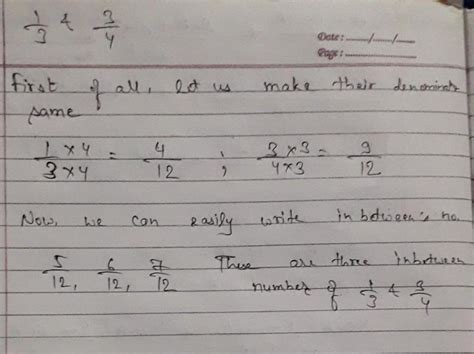 1/3 & 3/4
Date: __/__/__
Page: ______
First of all, let us make their denominat
same
1×4/3×4 = 4/12 ; 3×3/4×3 = 9/12
Now, we can easily write inbetween's no.
5/12, 6/12, 7/12 These are three inbetween
number of 1/3 & 3/4